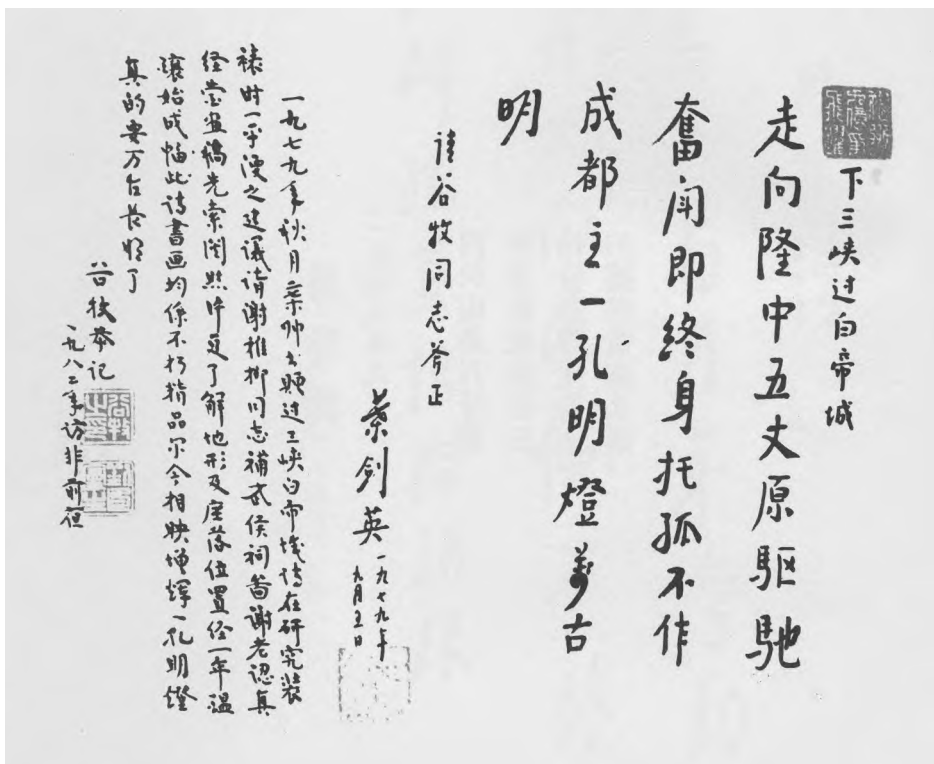 下三峡过白帝城
走向隆中五丈原驱驰
奋用即终身托孤不作
成都主一孔明燈萬古
明
请谷牧同志斧正
葉剑英
一九七九年
九月五日
一九七九年秋月葉帅书赐过三峡白帝城诗在研究装
裱时一平之建议请谢稚柳同志補武侯祠畵谢老認真
经营画稿先索阅照片更了解地形及座落位置经一年
始成幅此诗書画均係不朽精品尔今相映增辉一孔明燈
真的要万古长明了
谷牧恭记
一九八二年访非前夜